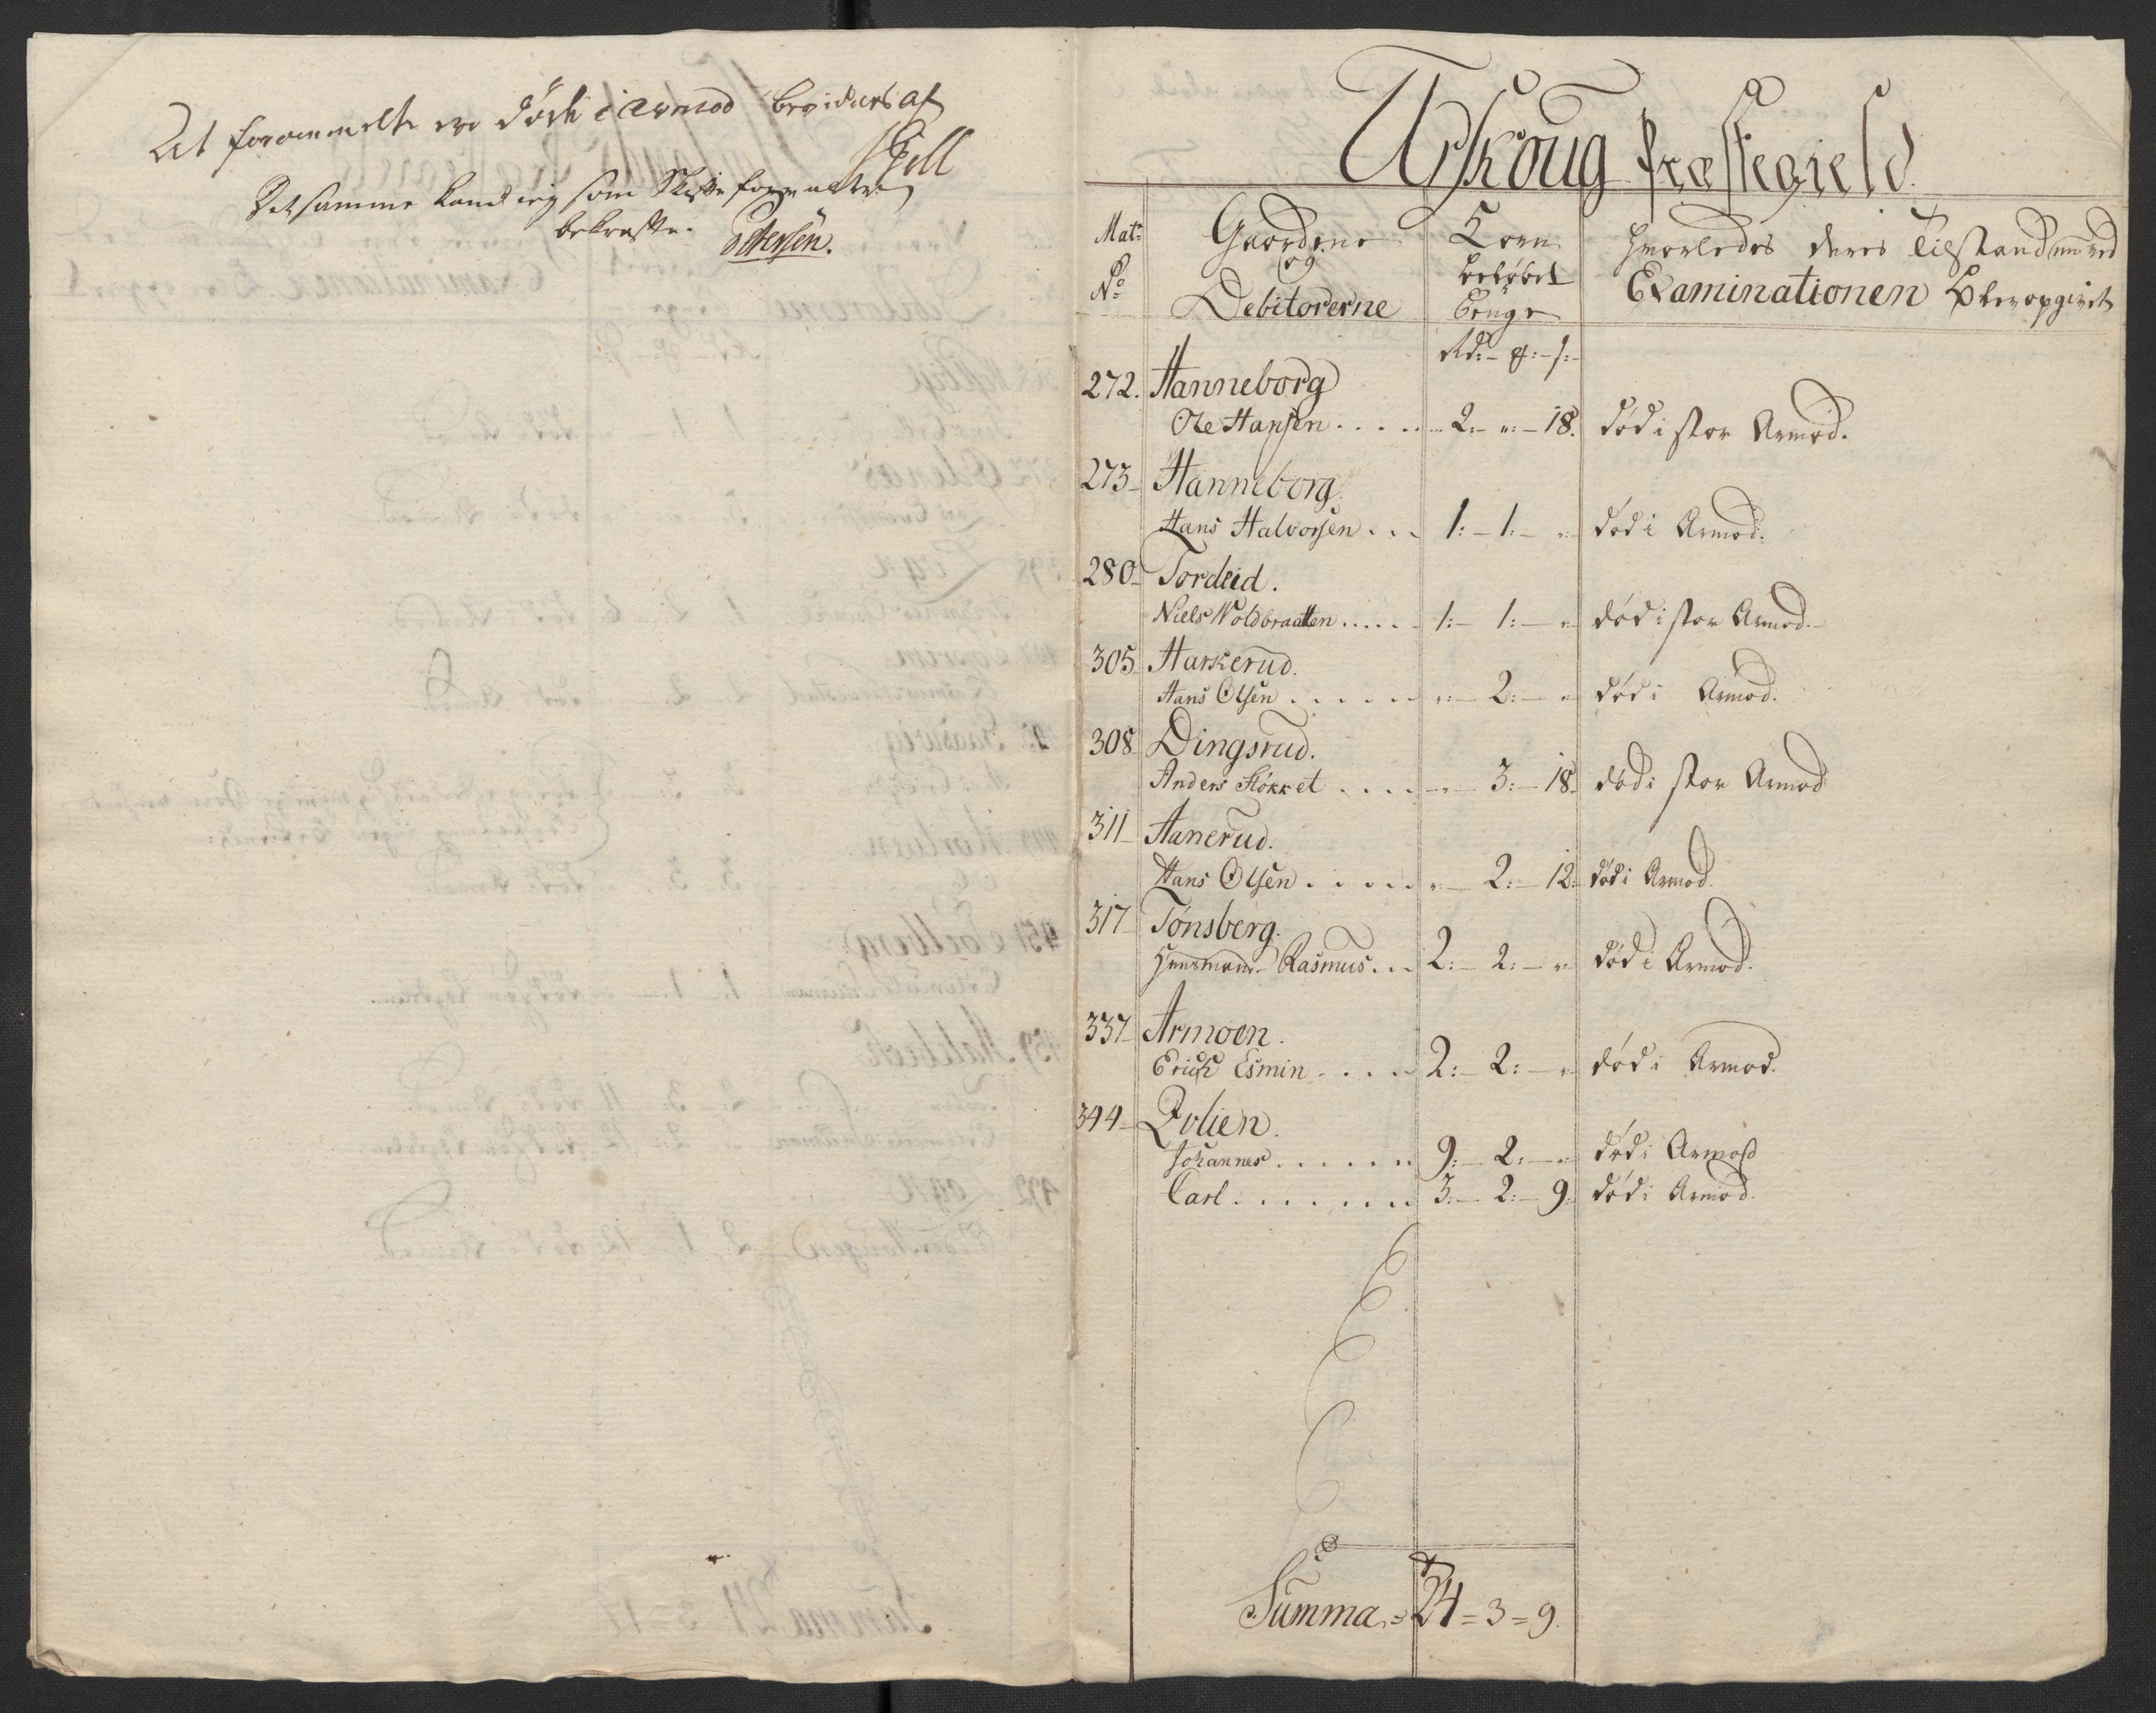 At forommelte ere døde i armod bevidnes af
Skiell
Det samme kand jeg som Skifteforvalter
bekræfte. Ottersen.
Urskoug Præstegield.
Mat: No
Gaardene og Debitorerne
Korn beløbet Penge
Hvorledes deres Tilstand nu ved Examinationen blev opgivet
Rd:– #:– s:–
272. Hanneborg
Ole Hansen . . . . . 2:– „:– 18. død i stor Armod.
273– Hanneborg.
Hans Halvorsen . . . 1:– 1:– „:– død i Armod.
280– Tordeid.
Niels Woldbraatten . . . . . 1:– 1:– „ død i stor Armod.
305. Harkerud.
Hans Olsen . . . . . „:– 2:– „ død i Armod.
308 Dingsrud.
Anders Fløkket . . . . „– 3:– 18. død i stor Armod
311– Hanerud.
Hans Olsen . . . . . „– 2:– 12:– død i Armod.
317– Tonsberg.
Huusmand– Rasmus . . . 2:– 2:– „ død i Armod.
337– Armoen.
Erich Esmin . . . . 2:– 2:– „ død i Armod.
344– Lolien.
Johannes . . . . . . 9:– 2:– „ død i Armod
Carl . . . . . . . 3:– 2:– 9. død i Armod.
Summa = 24 = 3 = 9.